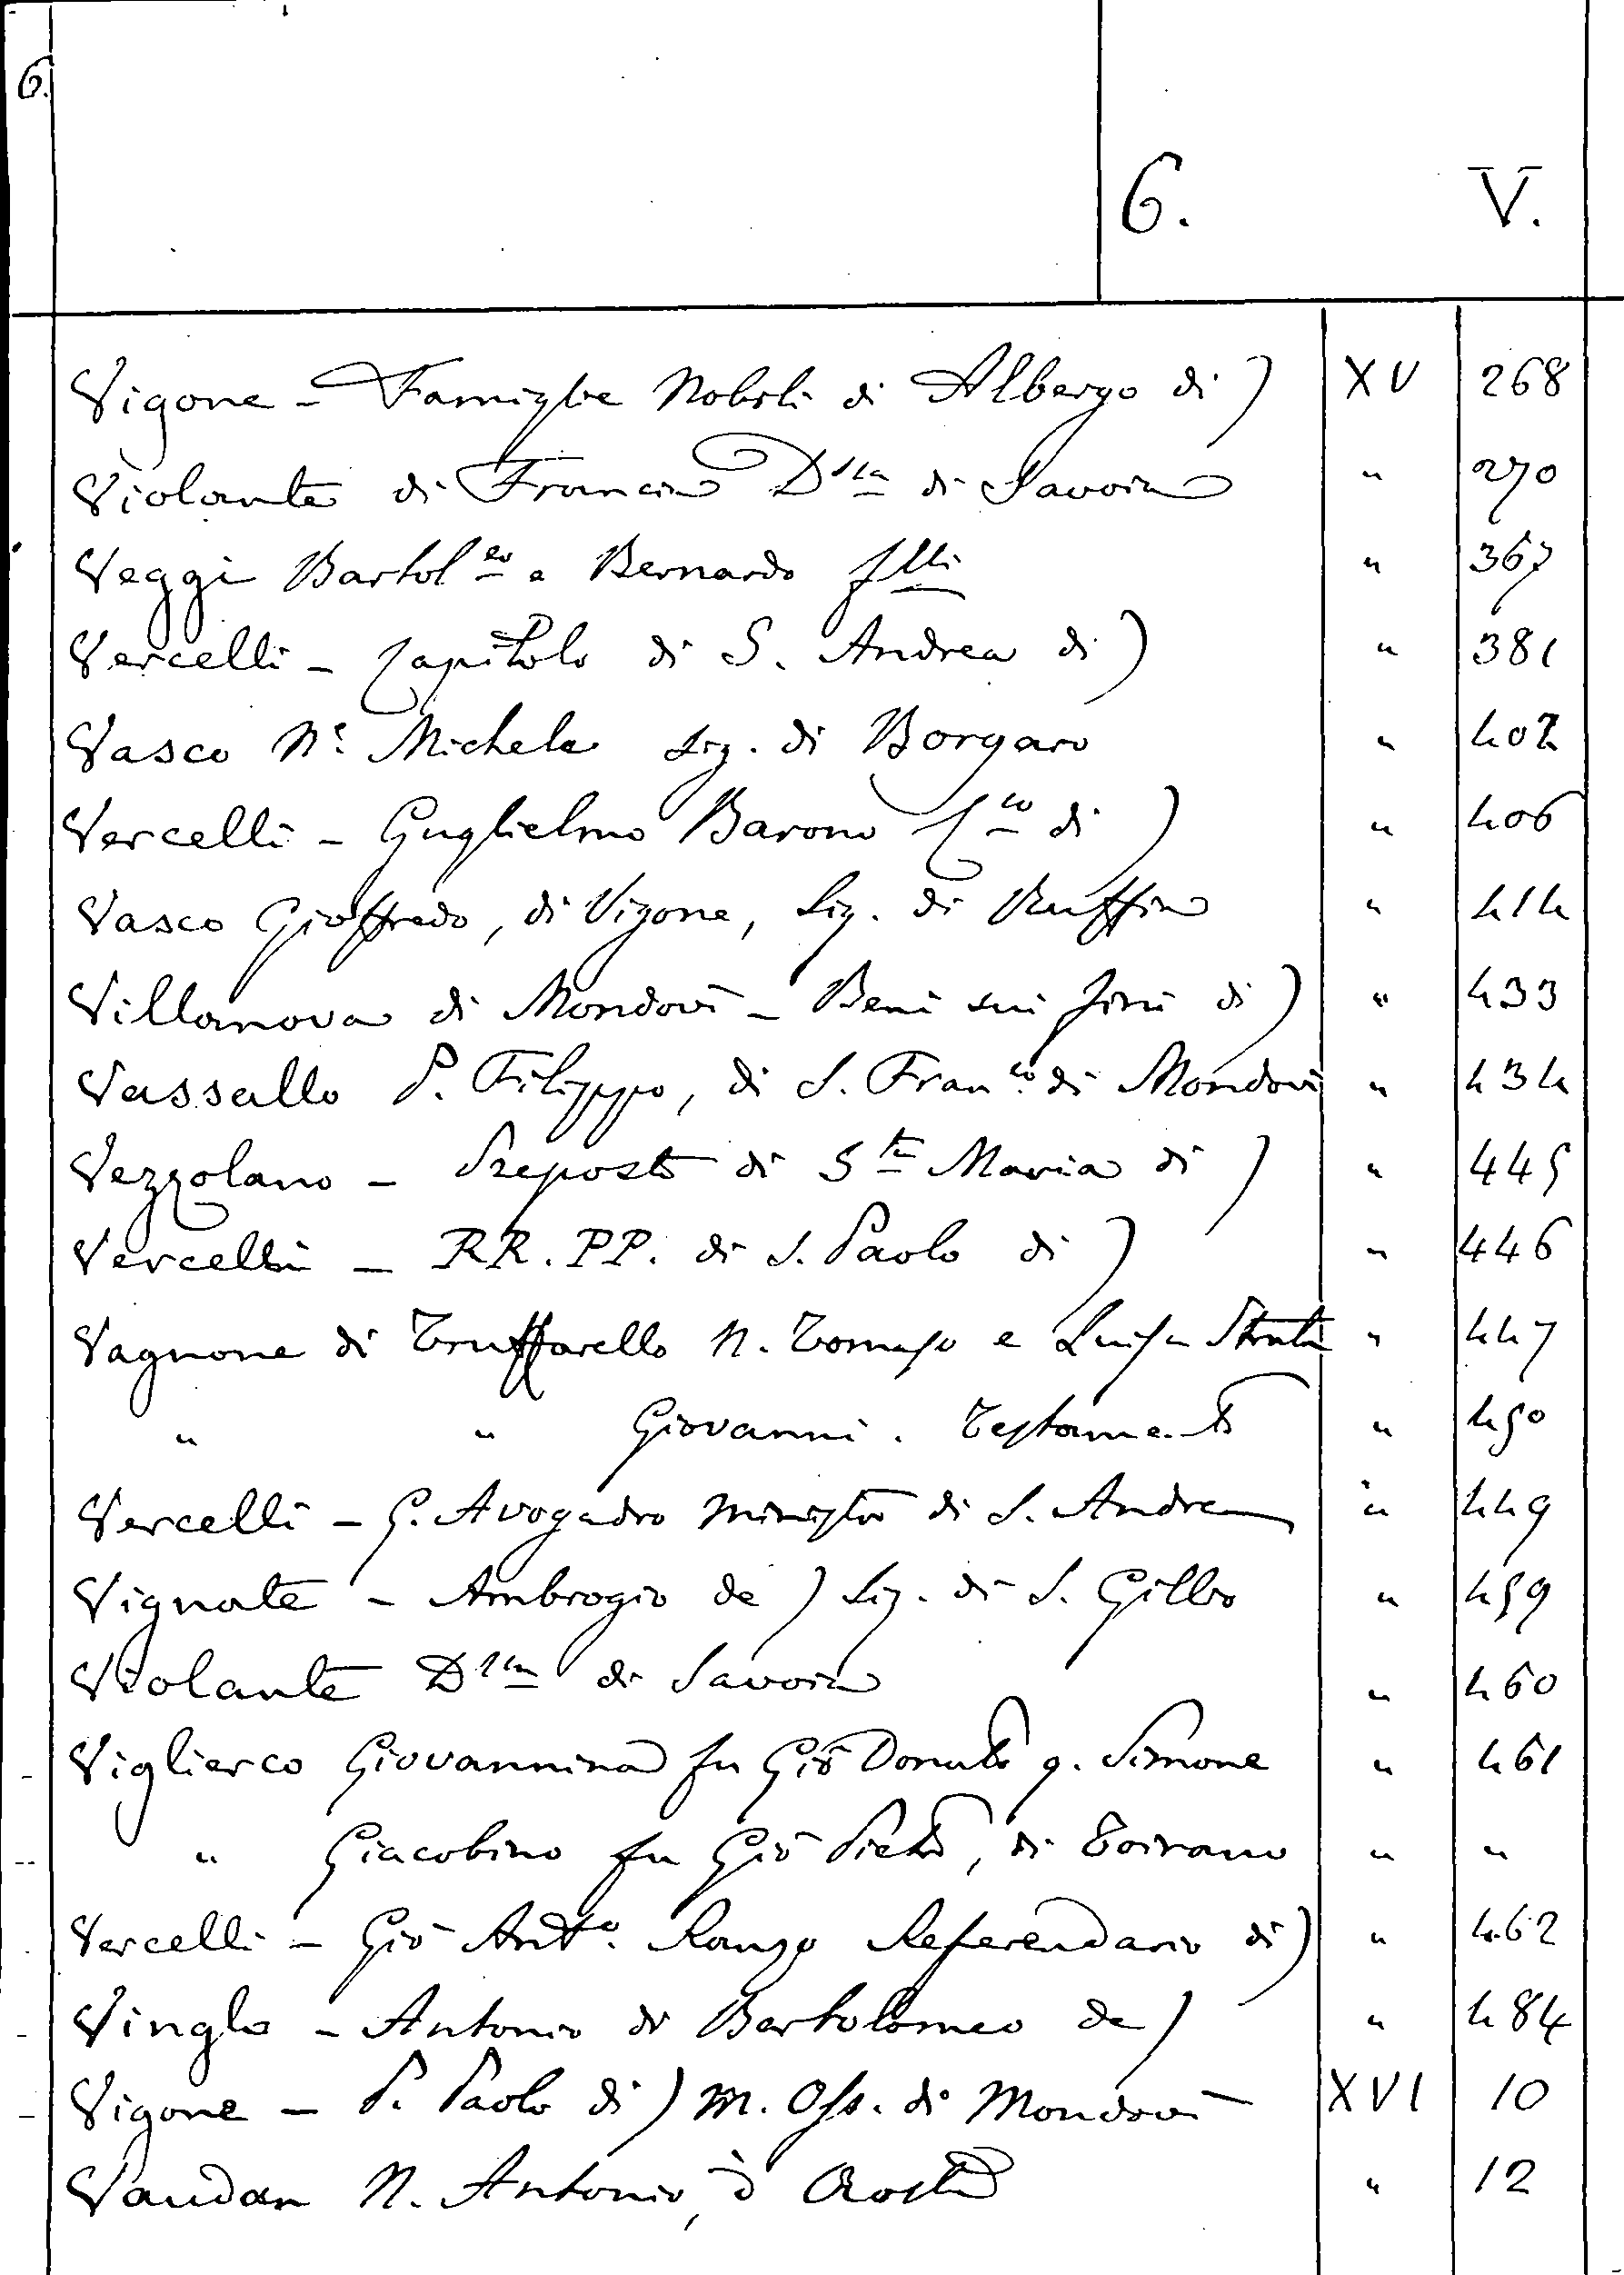 6.
6. V.
Vigone - Famiglie Nobili di Albergo di) XV 268
Violante di Francia D.ssa di Savoia " 270
Veggi Bartol.eo e Bernardo f.lli " 367
Vercelli - Capitolo di S. Andrea di) " 381
Vasco N.e Michele Sig. di Borgaro " 402
Vercelli - Guglielmo Barone C.co di) " 406
Vasco Gioffredo, di Vigone, Sig. di Ruffia " 414
Villanova di Mondovì - Beni sui fini di) " 433
Vassallo P. Filippo, di S. Fran.co di Mondovì " 434
Vezzolano - Preposto di S.ta Maria di) " 445
Vercelli - RR. PP. di S. Paolo di) " 446
Vagnone di Truffarello N. Tomaso e Luisa Strata " 447
" " Giovanni. Testamento " 450
Vercelli - G. Avogadro ministro di S. Andrea " 449
Vignate - Ambrogio de) Sig. di S. Gillio " 459
Violante D.ssa di Savoia " 460
Viglierco Giovannina fu Giō Donato q. Simone " 461
" Giacobino fu Giō Pietro, di Toirano " "
Vercelli - Giō Ant.o Ranzo Referendario di) " 462
Vingle - Antonio di Bartolomeo de) " 484
Vigone - P. Paolo di) M. Oss. di Mondovì XVI 10
Vaudan N. Antonio, d'Aosta " 12